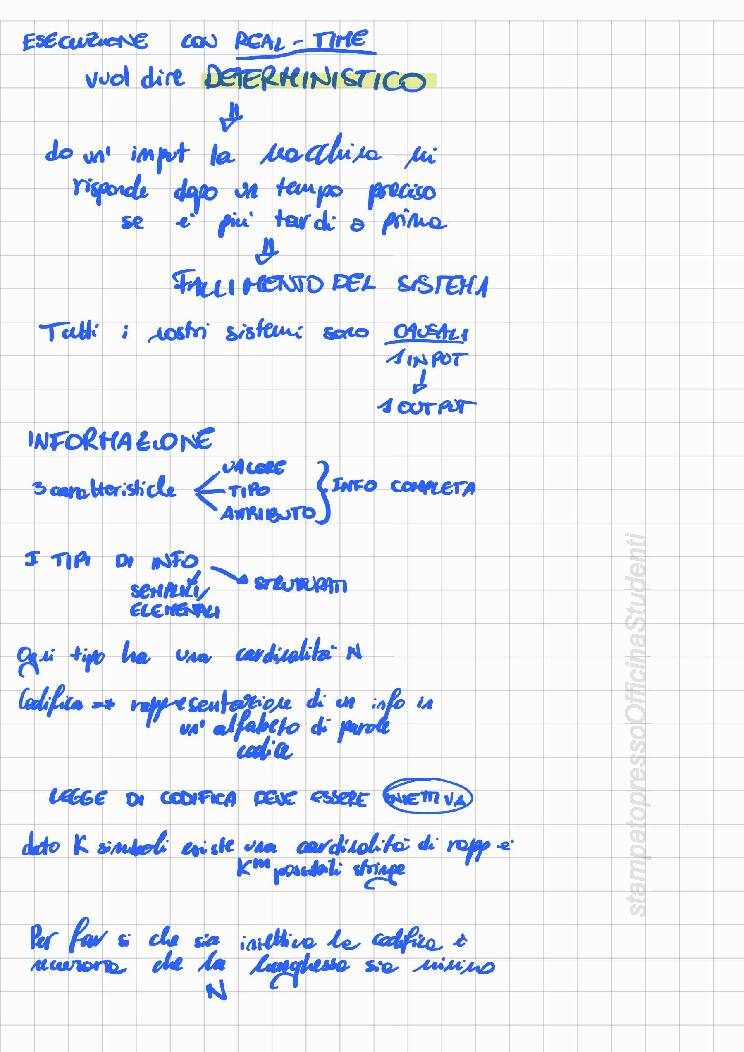 ESECUZIONE CON REAL-TIME
vuol dire DETERMINISTICO
⇓
do un' input la macchina mi
risponde dopo un tempo preciso
se e' piu' tardi o prima
⇓
FALLIMENTO DEL SISTEMA
Tutti i nostri sistemi sono CAUSALI
1 INPUT
↓
1 OUTPUT
INFORMAZIONE
3 caratteristiche
VALORE
TIPO
ATTRIBUTO
INFO COMPLETA
I TIPI DI INFO
STRUTTURATI
SEMPLICI/
ELEMENTALI
Ogni tipo ha una cardinalità N
Codifica => rappresentazione di un info in
un' alfabeto di parole
codice
LEGGE DI CODIFICA DEVE ESSERE INIETTIVA
dato K simboli esiste una cardinalità di rapp e'
K^m possibili stringe
Per far si che sia iniettiva la codifica è
necessario che la lunghessa sia minimo
N
stampatopressoOfficinaStudenti